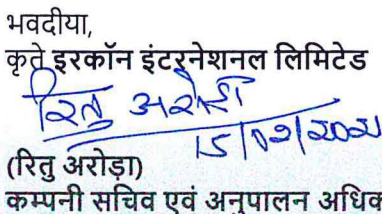 भवदीया,
कृते इरकॉन इंटरनेशनल लिमिटेड
रितु अरोड़ा
15/02/2021
(रितु अरोड़ा)
कम्पनी सचिव एवं अनुपालन अधिक